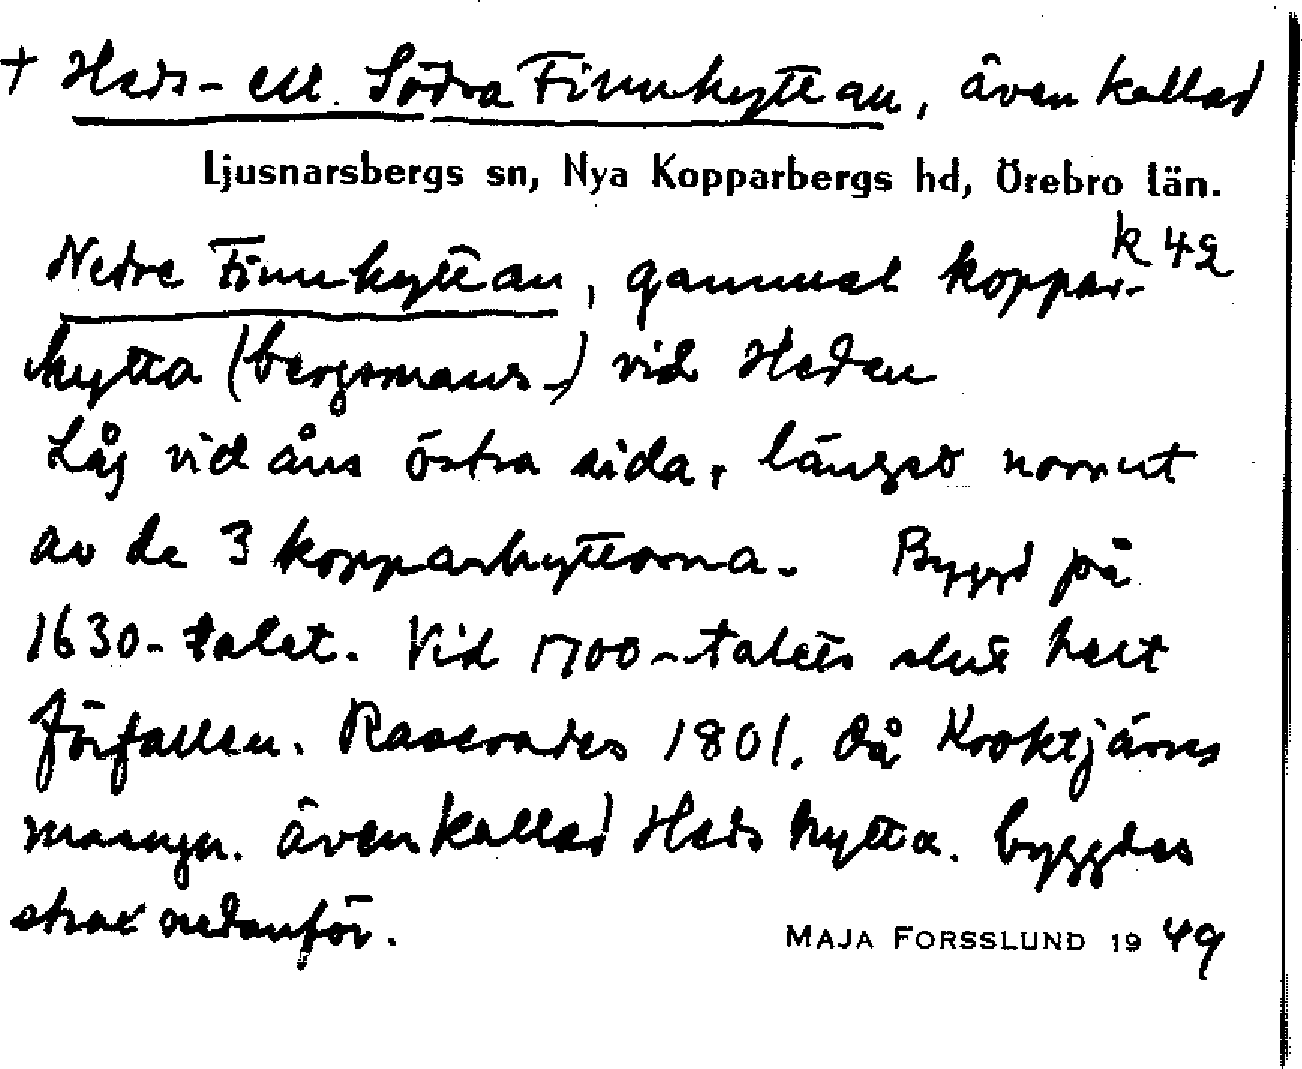 + Heds- ell. Södra Finnhyttan, även kallad
Ljusnarsbergs sn, Nya Kopparbergs hd, Örebro län.
k 42
Nedre Finnhyttan, gammal koppar-
hytta (bergsmans-) vid Heden
Låg vid åns östra sida, längst norrut
av de 3 kopparhyttorna. Byggd på
1630-talet. Vid 1700-talets slut helt
förfallen. Raserades 1801, då Kroktjärns
masugn. även kallad Heds hytta. byggdes
strax nedanför.
MAJA FORSSLUND 1949